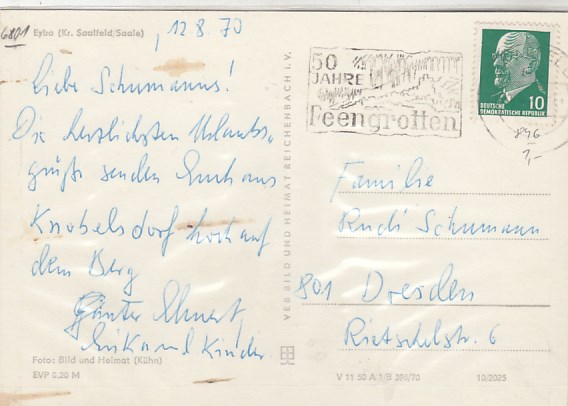 6801
Eyba (Kr. Saalfeld/Saale)
12.8.70
Liebe Schumanns!
Die herzlichsten Urlaubs-
grüße senden Euch aus
Knobelsdorf hoch auf
dem Berg
Günter Ehnert,
Erika und Kinder
Foto: Bild und Heimat (Kühn)
EVP 0,20 M
VEB BILD UND HEIMAT REICHENBACH I. V.
50
JAHRE
Feengrotten
DEUTSCHE
DEMOKRATISCHE REPUBLIK
10
846
2,-
Familie
Rudi Schumann
801 Dresden
Rietschelstr. 6
V 11 50 A 1/B 398/70
10/2025